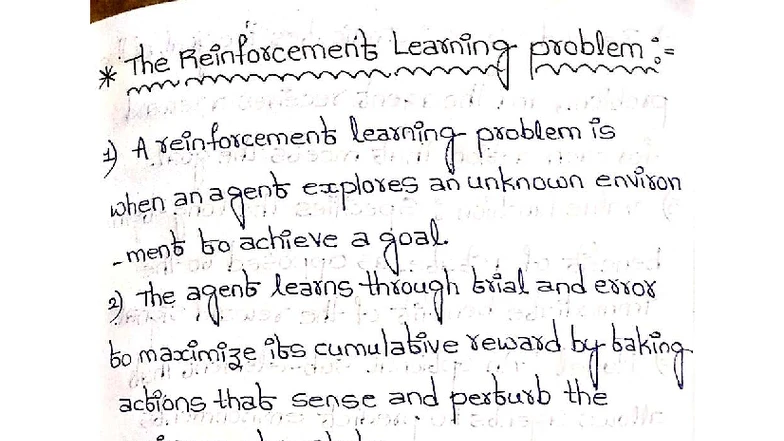 * The Reinforcement Learning problem :=
1) A reinforcement learning problem is
when an agent explores an unknown environ
-ment to achieve a goal.
2) The agent learns through trial and error
to maximize its cumulative reward by taking
actions that sense and perturb the